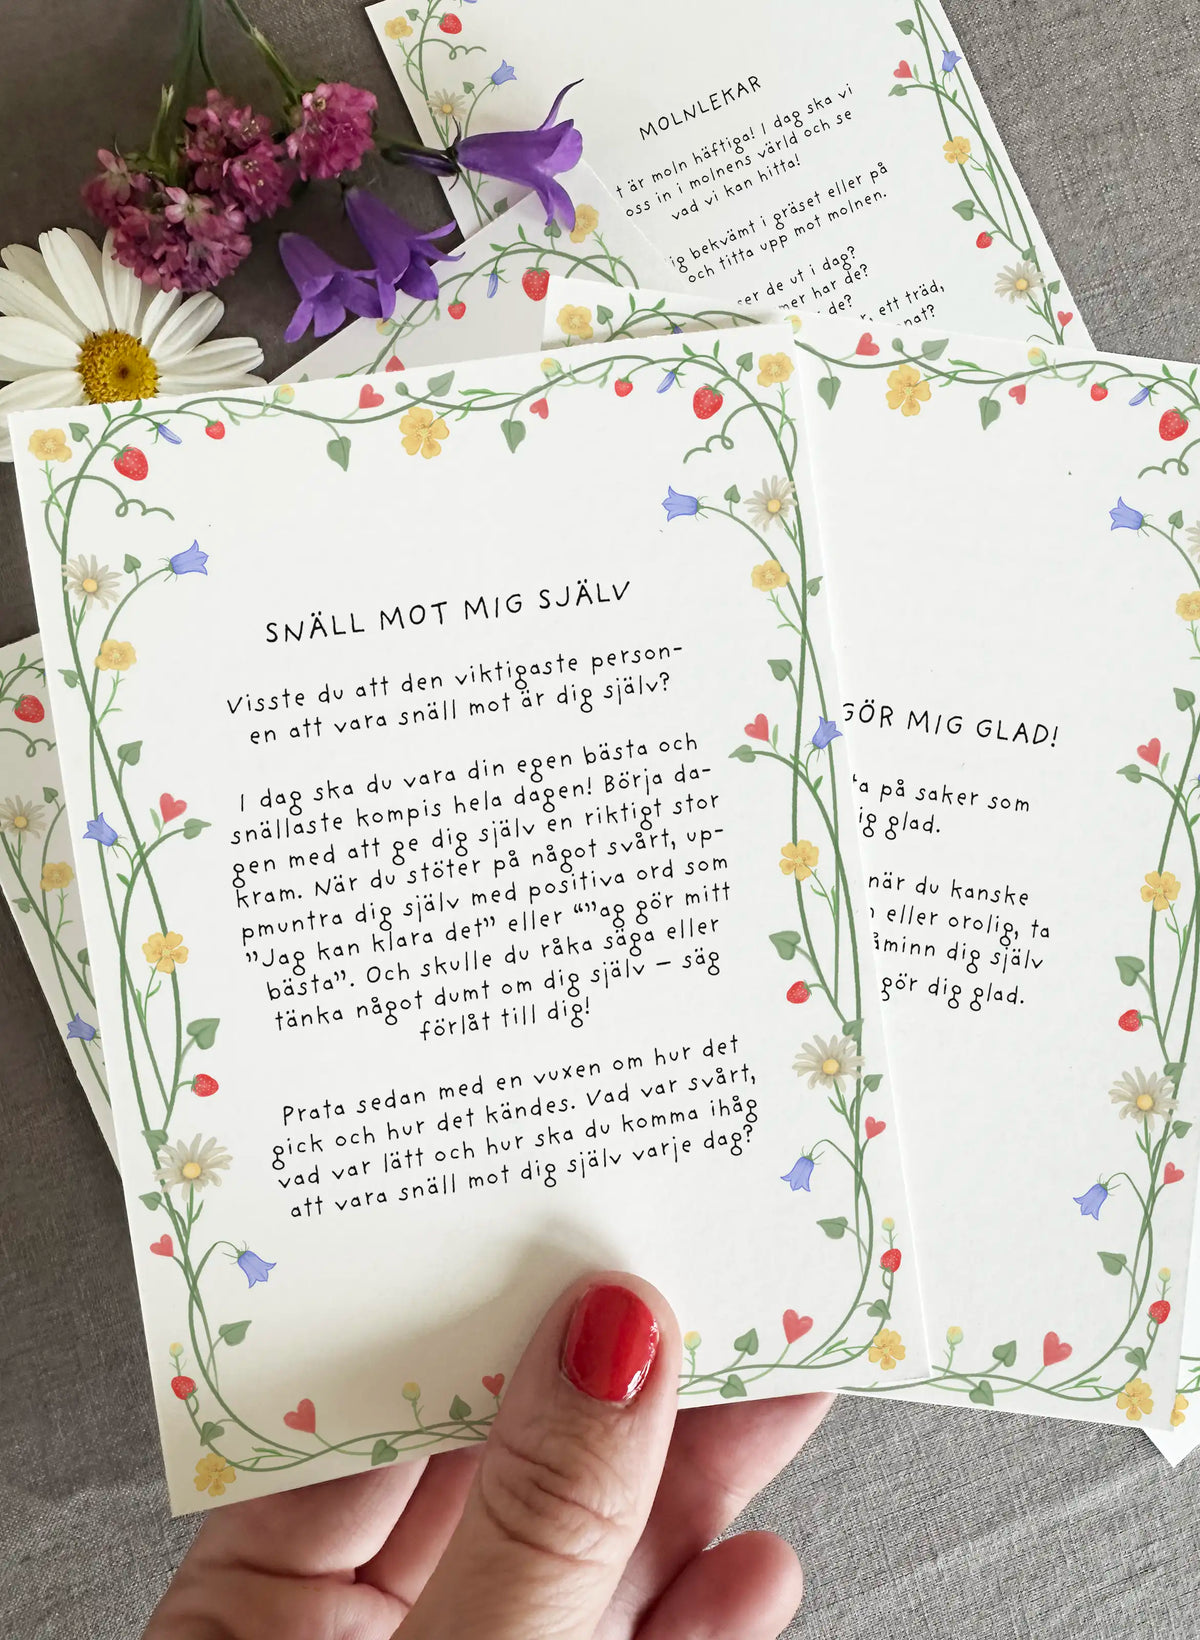 MOLNLEKAR
t är moln häftiga! I dag ska vi
oss in i molnens värld och se
vad vi kan hitta!
ig bekvämt i gräset eller på
och titta upp mot molnen.
ser de ut i dag?
mer har de?
de?
r, ett träd,
nat?
SNÄLL MOT MIG SJÄLV
Visste du att den viktigaste person-
en att vara snäll mot är dig själv?
I dag ska du vara din egen bästa och
snällaste kompis hela dagen! Börja da-
gen med att ge dig själv en riktigt stor
kram. När du stöter på något svårt, up-
pmuntra dig själv med positiva ord som
”Jag kan klara det” eller “”ag gör mitt
bästa”. Och skulle du råka säga eller
tänka något dumt om dig själv – säg
förlåt till dig!
Prata sedan med en vuxen om hur det
gick och hur det kändes. Vad var svårt,
vad var lätt och hur ska du komma ihåg
att vara snäll mot dig själv varje dag?
GÖR MIG GLAD!
a på saker som
ig glad.
när du kanske
eller orolig, ta
åminn dig själv
gör dig glad.